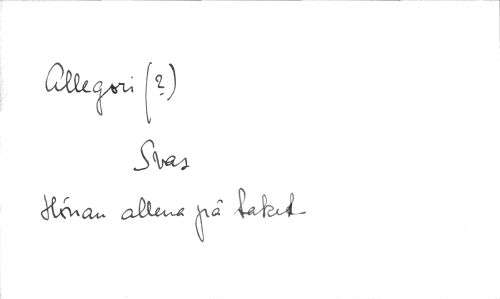 Allegori (?)
Svas
Hönan allena på taket